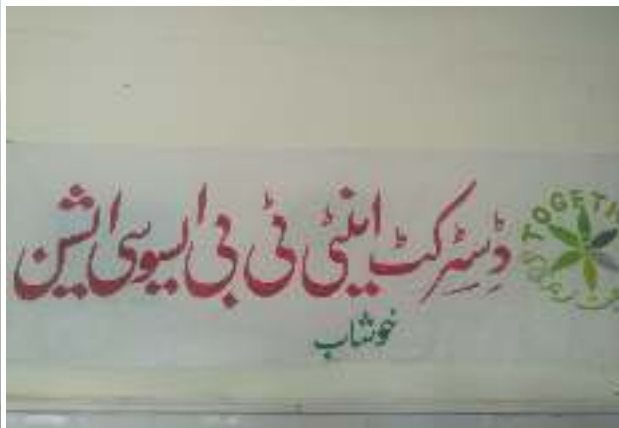 ڈسٹرکٹ اینٹی ٹی بی ایسوسی ایشن
خوشاب